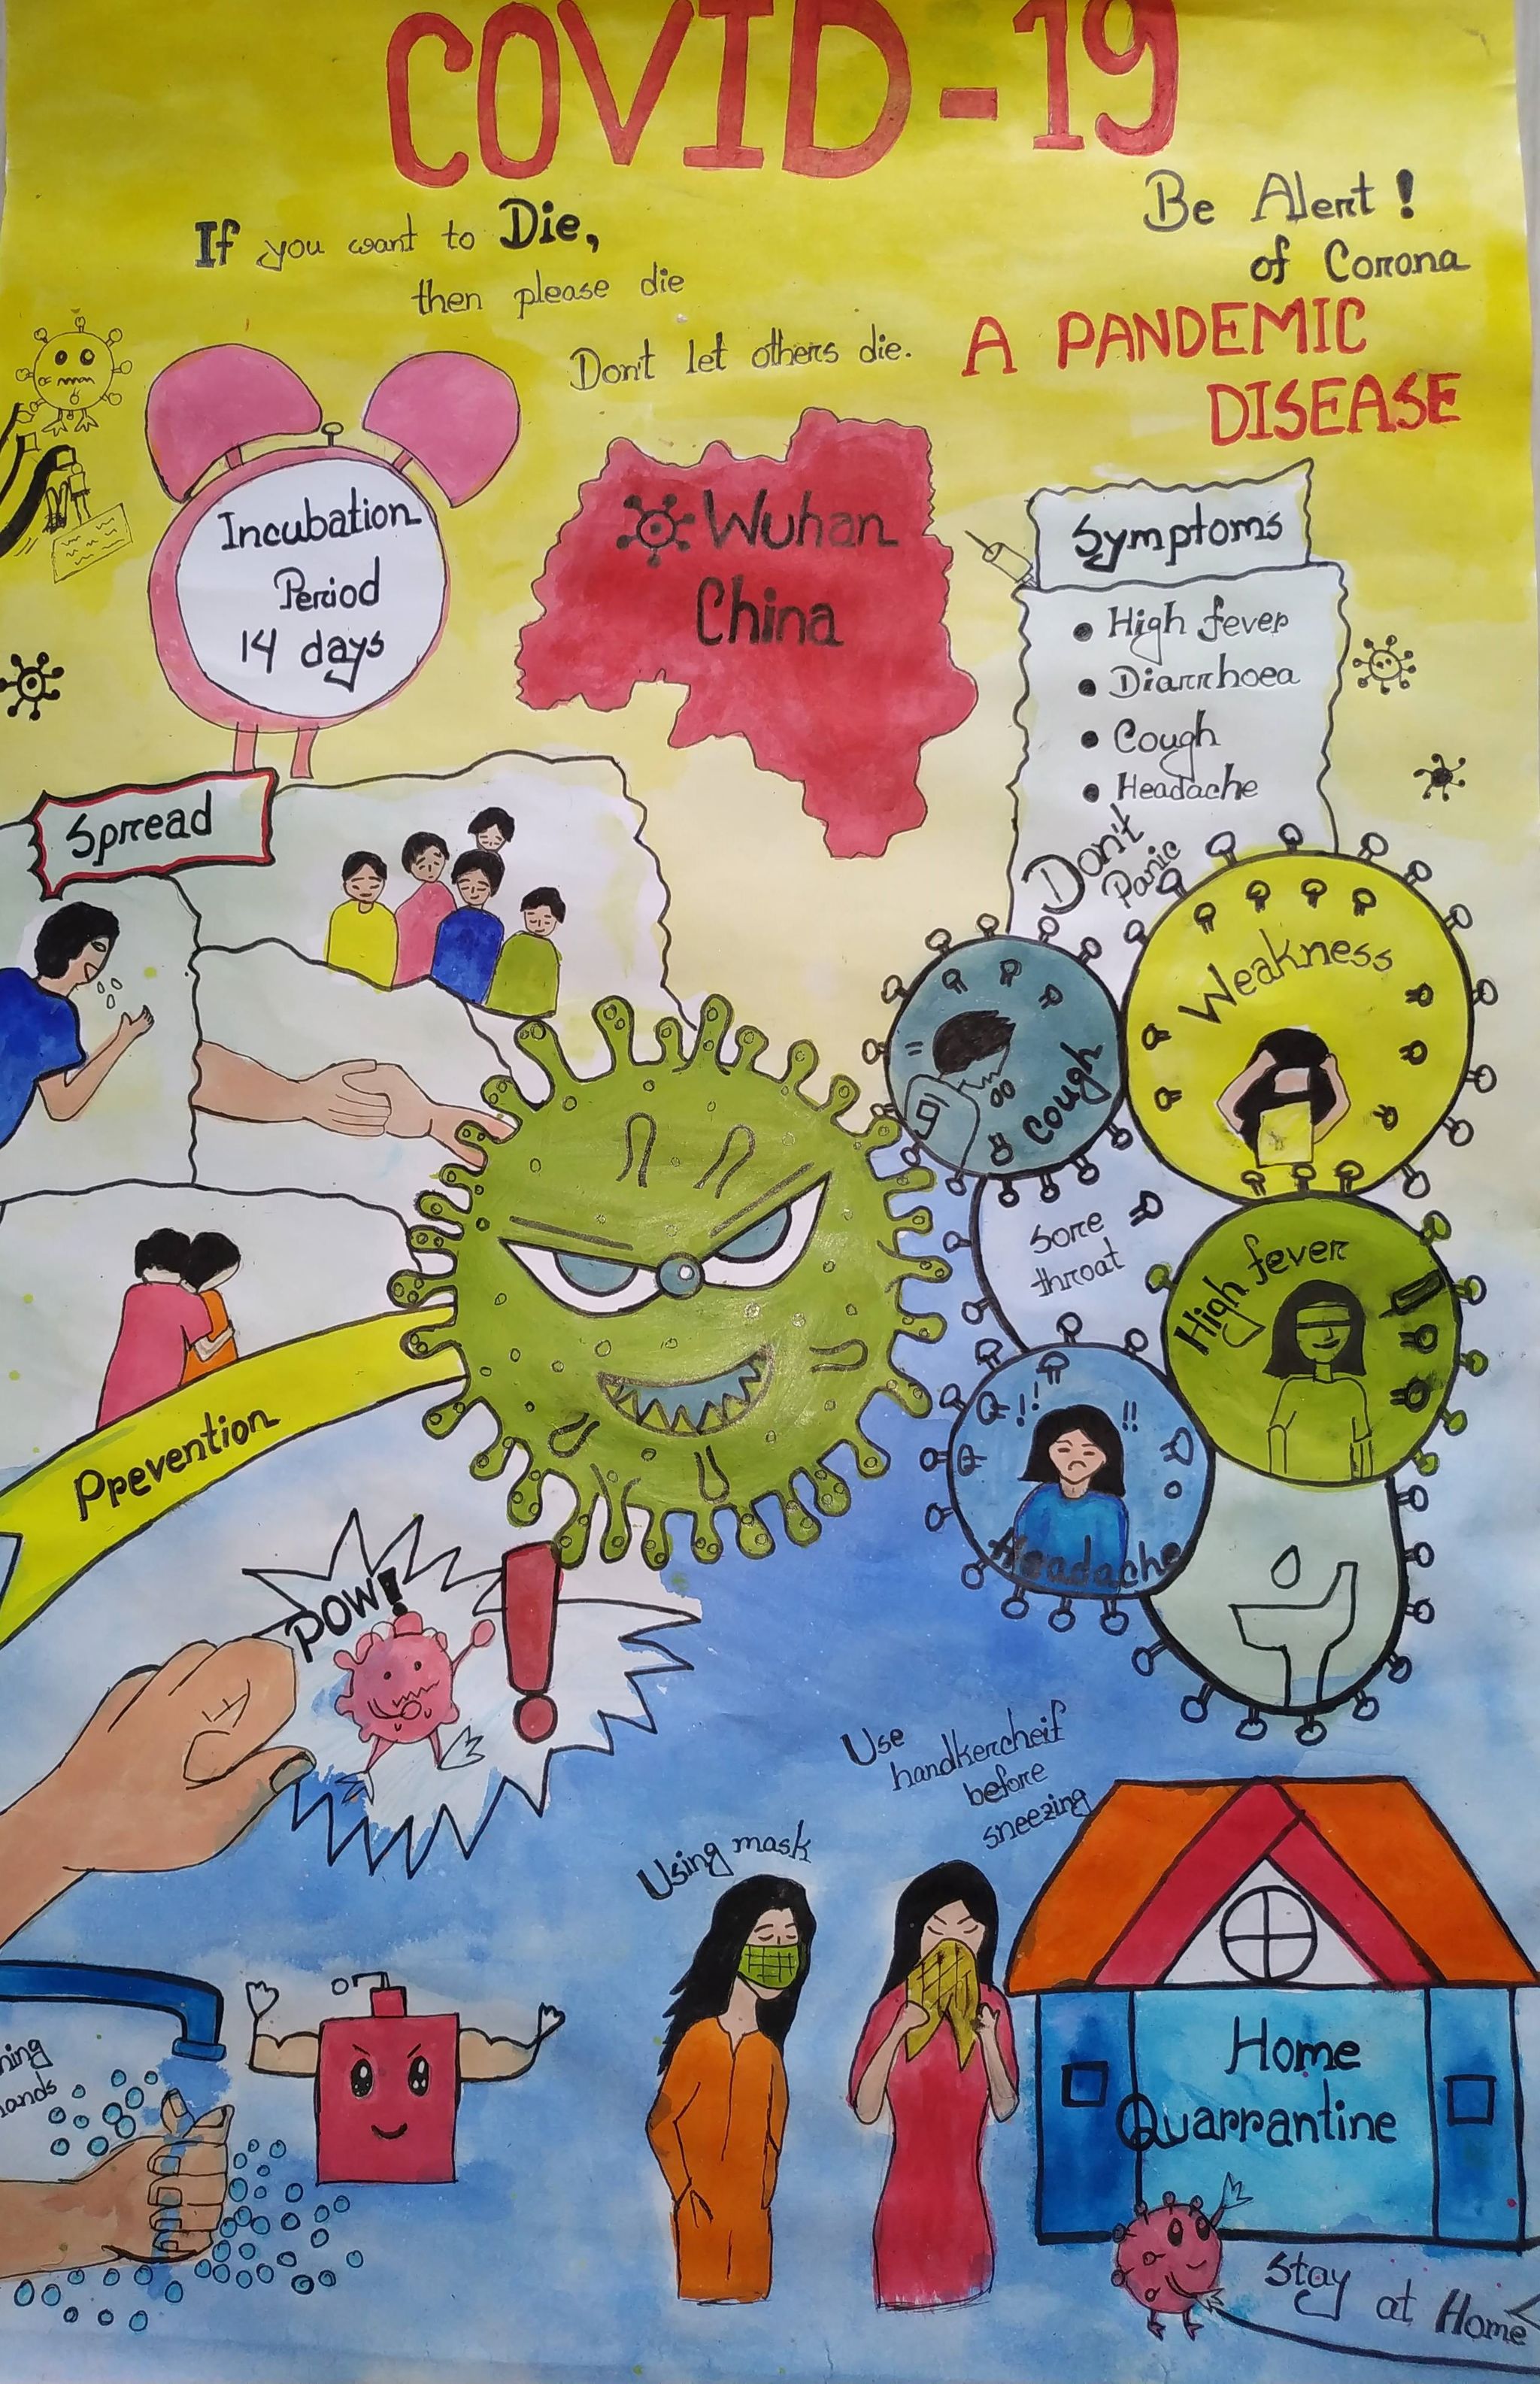 COVID-19
If you want to Die,
then please die
Don't let others die.
Be Alert !
of Corona
A PANDEMIC
DISEASE
Incubation
Period
14 days
Wuhan
China
Symptoms
High fever
Diarrhoea
Cough
Headache
Don't
Panic
Spread
Weakness
Cough
Sore
throat
High fever
Headache
Prevention
POW!
Use
handkercheif
before
sneezing
Using mask
Home
Quarrantine
Stay at Home